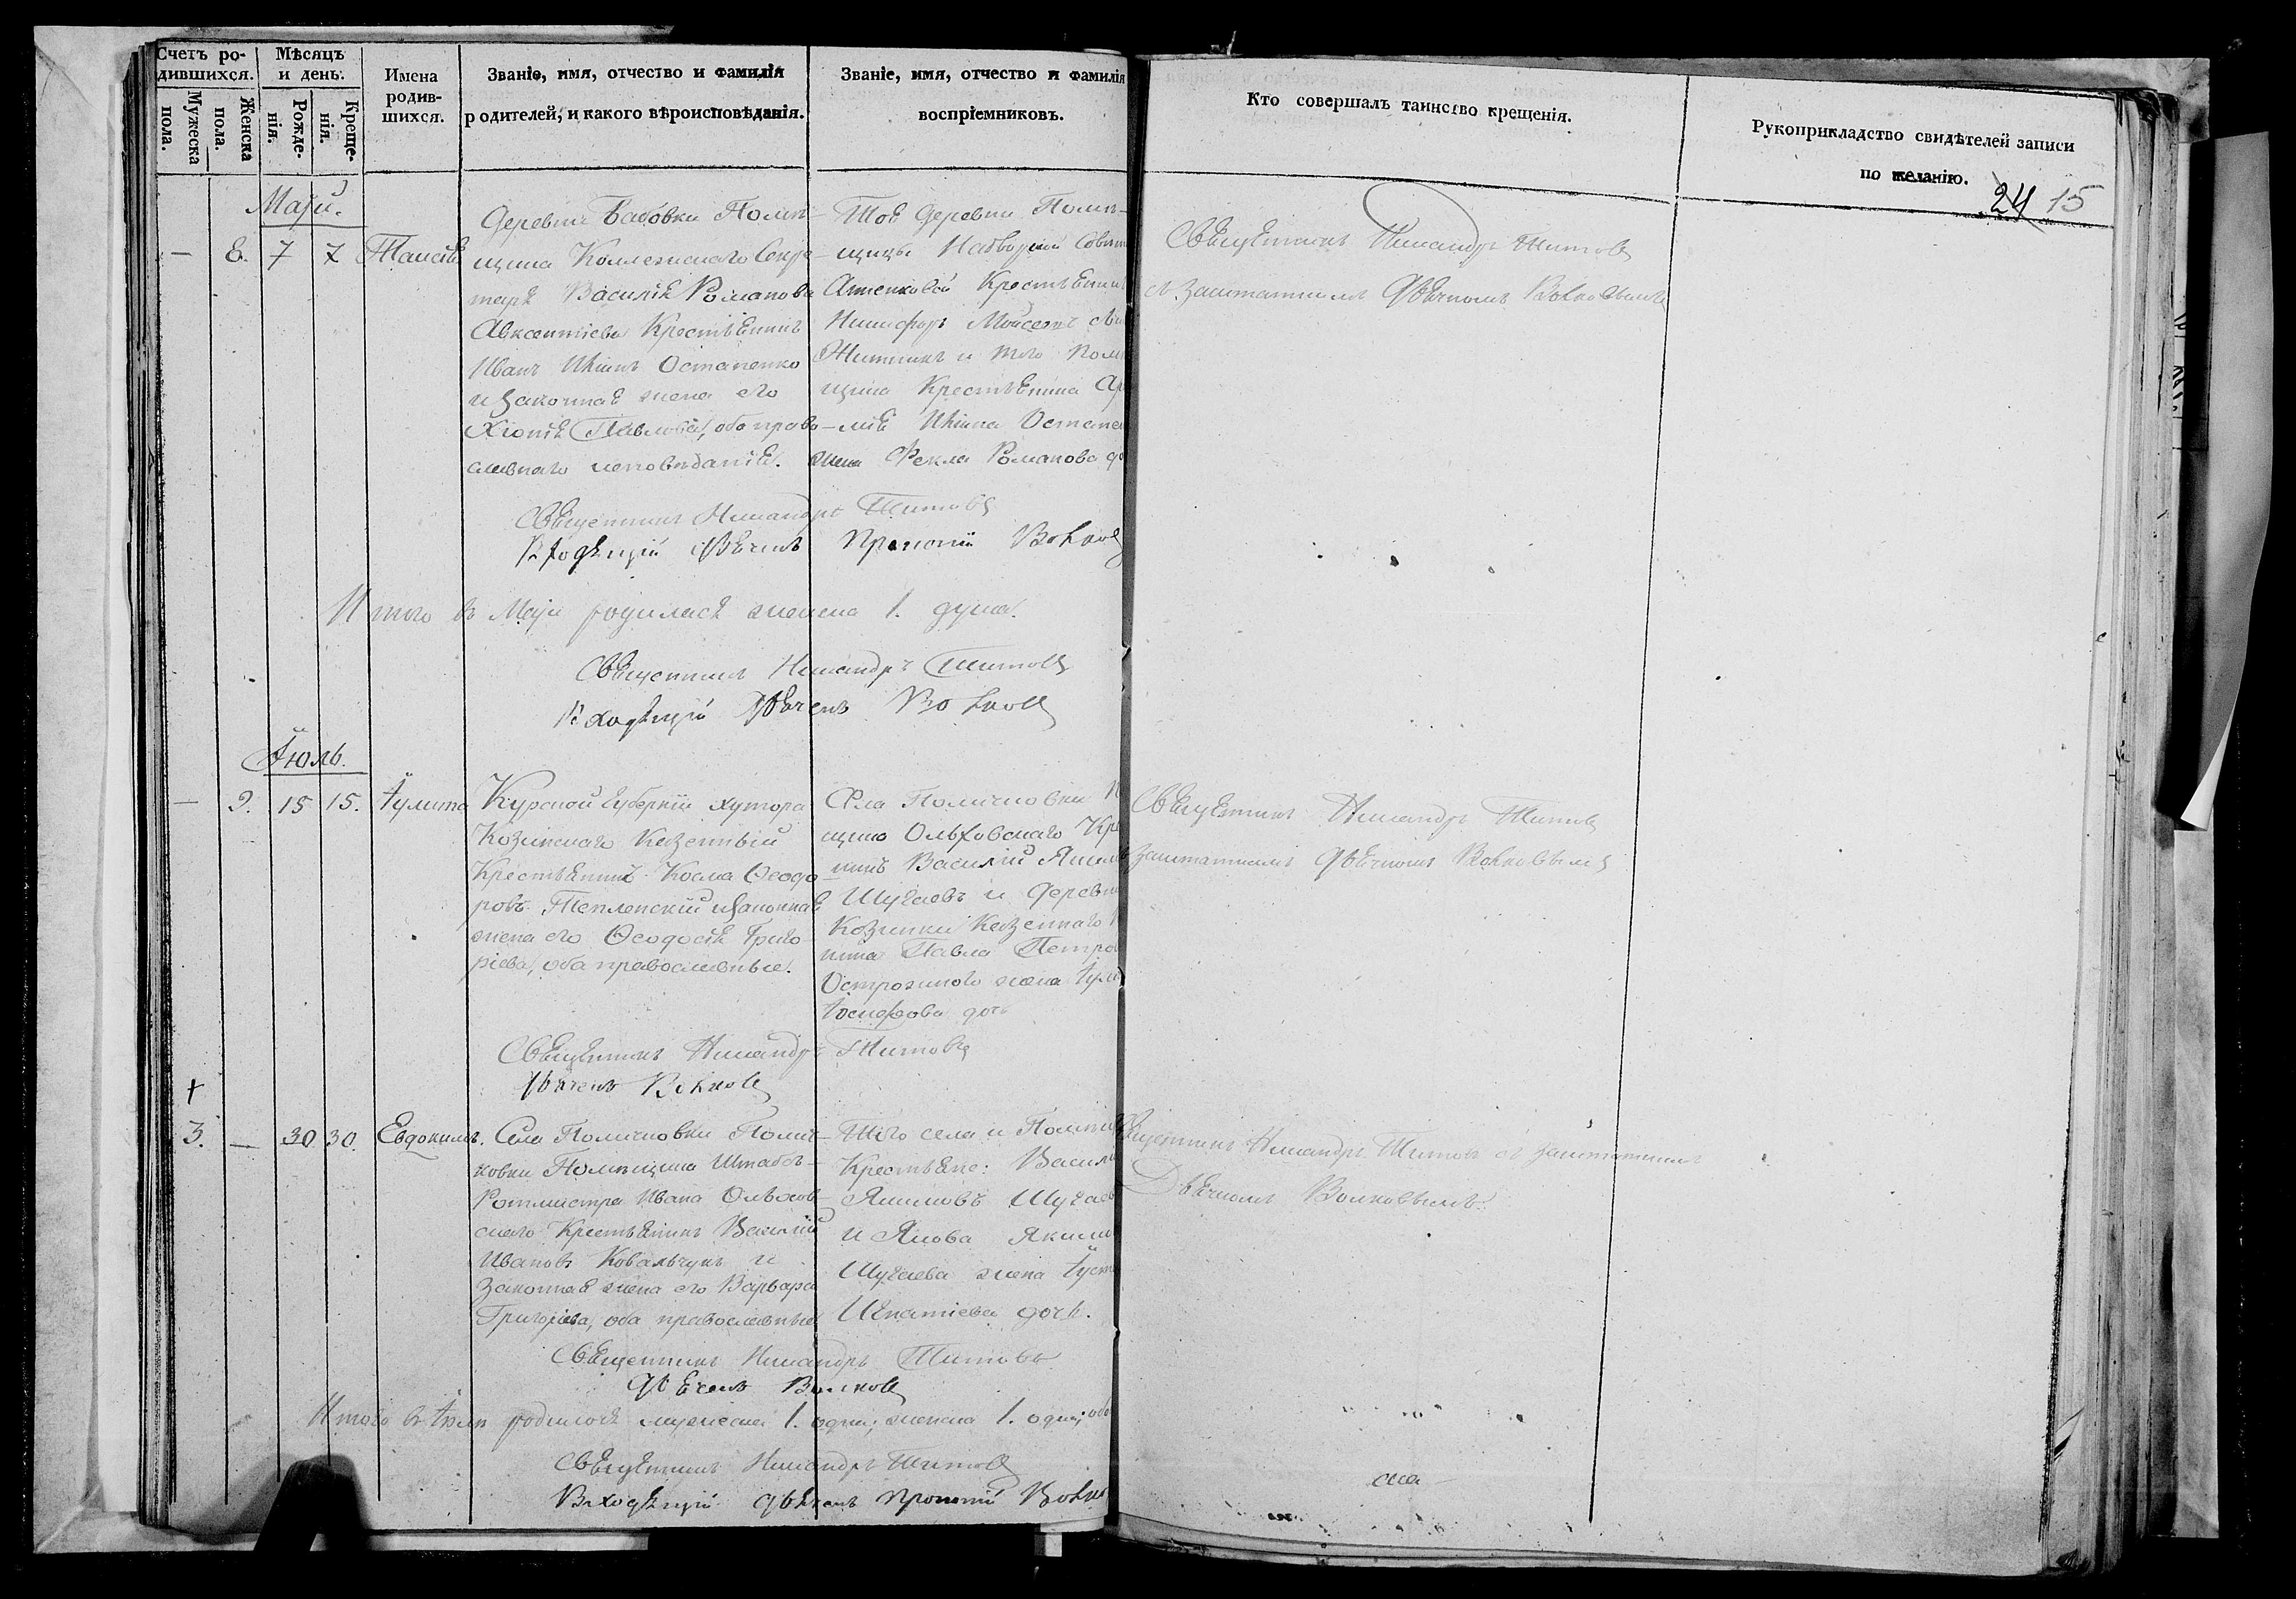 Счетъ ро-
дившихся.
Мѣсяцъ
и день.
Мужеска
пола.
Женска
пола.
Рожде-
нія.
Креще-
нія.
Имена
родив-
шихся.
Званіе, имя, отчество и фамилія
родителей, и какого вѣроисповѣданія.
Званіе, имя, отчество и фамилія
воспріемниковъ.
Кто совершалъ таинство крещенія.
Рукоприкладство свидѣтелей записи
по желанію.
24 15
Маій.
— 8. 7 7 Таисія
Деревни Бабовки Помѣ-
щика Коллежскаго Секре-
таря Василія Романова
Авксентіева Крестьянинъ
Иванъ Остапенко
и законная жена его
Хіонія Павлова, оба право-
славнаго исповѣданія.
Той деревни Помѣ-
щицы Надворной Совѣтн
Крестьянинъ
Никифоръ Моисеевъ
Житникъ и того Помѣ
щика Крестьянина
Остапен
жена Фекла Романова до
Священникъ Никандръ Титовъ
съ заштатнымъ Дьячкомъ Волковымъ
Священникъ Никандръ Титовъ
Входящій Дьячекъ Прокопій Волковъ
Итого въ Маіи родилась женска 1. душа.
Священникъ Никандръ Титовъ
Входящій Дьячекъ Волковъ
Іюль.
— 9. 15 15. Іулита
Курской Губерніи хутора
Козинскаго Казенный
Крестьянинъ Косма Ѳеодо
ровъ Тепленскій и законная
жена его Ѳеодосія Григо-
ріева, оба православные.
Села Поличковки П
щика Ольховскаго Кре
нинъ Василій Якимовъ
Шугаевъ и деревни
Козинки Казеннаго
нина Павла Петро
жена Іули
Іосифова дочь
Священникъ Никандръ Титовъ
заштатнымъ Дьячкомъ Волковымъ
Священникъ Никандръ Титовъ
Дьячекъ Волковъ
+
3. — 30 30. Евдокимъ.
Села Поличковки Полич-
ковки Помѣщика Штабсъ-
Ротмистра Ивана Ольхов-
скаго Крестьянинъ Василій
Ивановъ Ковальчукъ и
законная жена его Варвара
Григоріева, оба православные
Того села и Помѣщи
Крестьяне: Василій
Якимовъ Шугаевъ
и Якова Якимова
Шугаева жена Іуст
Игнатіева дочь.
Священникъ Никандръ Титовъ съ заштатнымъ
Дьячкомъ Волковымъ.
Священникъ Никандръ Титовъ
Дьячекъ Волковъ
Итого въ Іюлѣ родилось мужеска 1. одна; женска 1. одна; обо
Священникъ Никандръ Титовъ
Входящій Дьячекъ Прокопій Волковъ